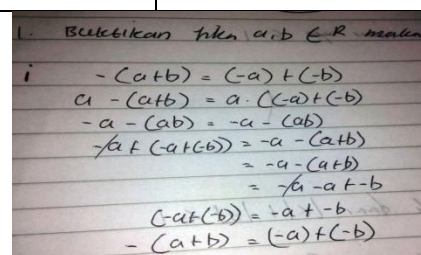 1. Buktikan jika a,b ∈ R maka
i -(a+b) = (-a)+(-b)
a -(a+b) = a.((-a)+(-b)
-a -(ab) = -a -(ab)
-a+(-a+(-b)) = -a -(a+b)
= -a -(a+b)
= -a -a+-b
(-a+(-b)) = -a+-b
-(a+b) = (-a)+(-b)